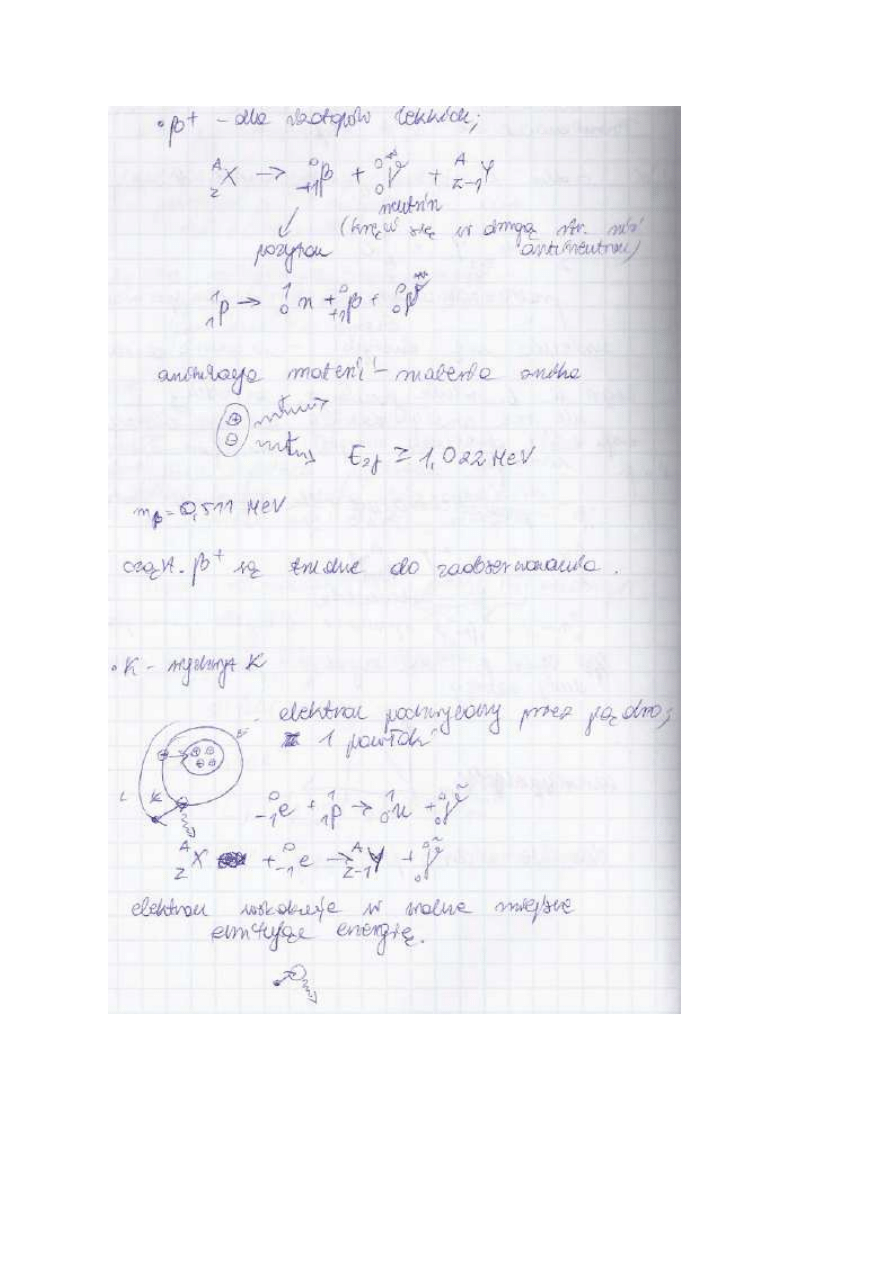 • β⁺ - dla izotopów lekkich;
ᴬ_Z X → ⁰₊₁β + ⁰₀ν + ᴬ_Z₋₁Y
neutrin
(kręci się w drugą str. niż
pozyton antineutron)
¹₁p → ¹₀n + ⁰₊₁β + ⁰₀ν
anihilacja materii - materia
E₂γ ≥ 1,022 MeV
mᵦ = 0,511 MeV
cząst. β⁺ są trudne do zaobserwowania.
• K - wychwyt K
- elektron podchwycony przez jądro;
1 powłok
L K
⁰₋₁e + ¹₁p → ¹₀n + ⁰₀ν
ᴬ_Z X + ⁰₋₁e → ᴬ_Z₋₁Y + ⁰₀ν
elektron wskakuje w wolne miejsce
emitując energię.